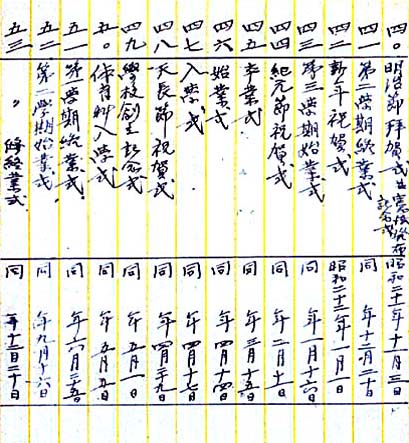 四〇 明治節拜賀式並憲法發布記念式 昭和二十二年十一月三日
四一 第二學期終業式 同 年十二月二十日
四二 新年祝賀式 昭和二十三年一月一日
四三 第三學期始業式 同 年一月十六日
四四 紀元節祝賀式 同 年二月十一日
四五 卒業式 同 年三月十五日
四六 始業式 同 年四月十四日
四七 入學式 同 年四月十七日
四八 天長節祝賀式 同 年四月二十九日
四九 學校創立記念式 同 年五月一日
五〇 保育科入學式 同 年五月五日
五一 第一學期終業式 同 年六月二五日
五二 第二學期始業式 同 年九月十六日
五三 〃 終業式 同 年十二月二十日